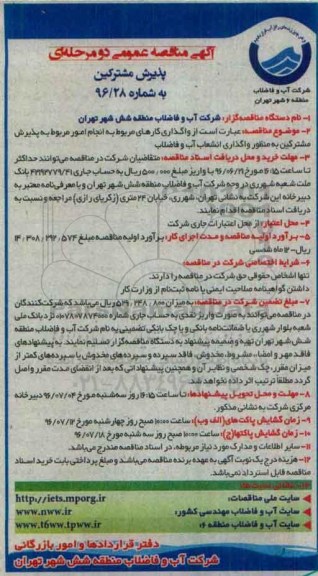 آگهی مناقصه عمومی دو مرحله‌ای
پذیرش مشترکین
به شماره ۹۶/۲۸
شرکت آب و فاضلاب
منطقه ۶ شهر تهران
۱- نام دستگاه مناقصه‌گزار: شرکت آب و فاضلاب منطقه شش شهر تهران
۲- موضوع مناقصه: عبارت است از واگذاری کارهای مربوط به انجام امور مربوط به پذیرش
مشترکین به منظور واگذاری انشعاب آب و فاضلاب
۳- مهلت خرید و محل دریافت اسناد مناقصه: متقاضیان شرکت در مناقصه می‌توانند حداکثر
تا ساعت ۱۶:۱۵ مورخ ۹۶/۰۶/۲۹ با واریز مبلغ ۵۰۰,۰۰۰ ریال به حساب جاری بانک
ملت شعبه شهروری در وجه شرکت آب و فاضلاب منطقه شش شهر تهران و با معرفی‌نامه معتبر به
دبیرخانه این شرکت به نشانی تهران، شهرری، خیابان ۲۴ متری (زکریای رازی) مراجعه و نسبت به
دریافت اسناد مناقصه اقدام نمایند.
۴- محل اعتبار: از محل اعتبارات جاری شرکت
۵- برآورد اولیه مناقصه و مدت اجرای کار: برآورد اولیه مناقصه مبلغ ۱۴,۳۰۸,۳۹۲,۵۷۴
ریال- ۱۲ ماه شمسی
۶- شرایط اختصاصی شرکت در مناقصه:
تنها اشخاص حقوقی حق شرکت در مناقصه را دارند.
داشتن گواهینامه صلاحیت ایمنی یا نامه ثبت‌نام از وزارت کار
۷- مبلغ تضمین شرکت در مناقصه: به میزان ریال می‌باشد که شرکت‌کنندگان
در مناقصه می‌توانند به صورت واریز نقدی به حساب جاری شماره نزد بانک ملی
شعبه بلوار شهرری یا ضمانت‌نامه بانکی و یا چک بانکی تضمینی به نام شرکت آب و فاضلاب منطقه
شش شهر تهران تهیه و ضمیمه پیشنهاد به دستگاه مناقصه‌گزار تسلیم نمایند. به پیشنهادهای
فاقد مهر و امضاء، مشروط، مخدوش، فاقد سپرده و سپرده‌های مخدوش یا سپرده‌های کمتر از
میزان مقرر، چک شخصی و نظایر آن و همچنین پیشنهاداتی که بعد از انقضای مدت مقرر واصل
گردد مطلقا ترتیب اثر داده نخواهد شد.
۸- مهلت و محل تحویل پیشنهادها: تا ساعت ۱۶:۱۵ روز سه‌شنبه مورخ ۹۶/۰۷/۰۴ دبیرخانه
مرکزی شرکت به نشانی مذکور.
۹- زمان گشایش پاکت‌های (الف و ب): ساعت ۱۰:۰۰ صبح روز چهارشنبه مورخ ۹۶/۰۷/۱۲
۱۰- زمان گشایش پاکتها (ج): ساعت ۱۰:۰۰ صبح روز سه شنبه مورخ ۹۶/۰۷/۱۸
۱۱- سایر اطلاعات و مدارک مورد نیاز مربوطه، در اسناد مناقصه مندرج می‌باشد.
۱۲- هزینه درج یک نوبت آگهی به عهده برنده مناقصه می‌باشد و مبلغ پرداختی بابت خرید اسناد
مناقصه قابل استرداد نمی‌باشد.
سایت ملی مناقصات: http://iets.mporg.ir
سایت آب و فاضلاب مهندسی کشور: www.nww.ir
سایت آب و فاضلاب منطقه ۶: www.t6ww.tpww.ir
دفتر قراردادها و امور بازرگانی
شرکت آب و فاضلاب منطقه شش شهر تهران